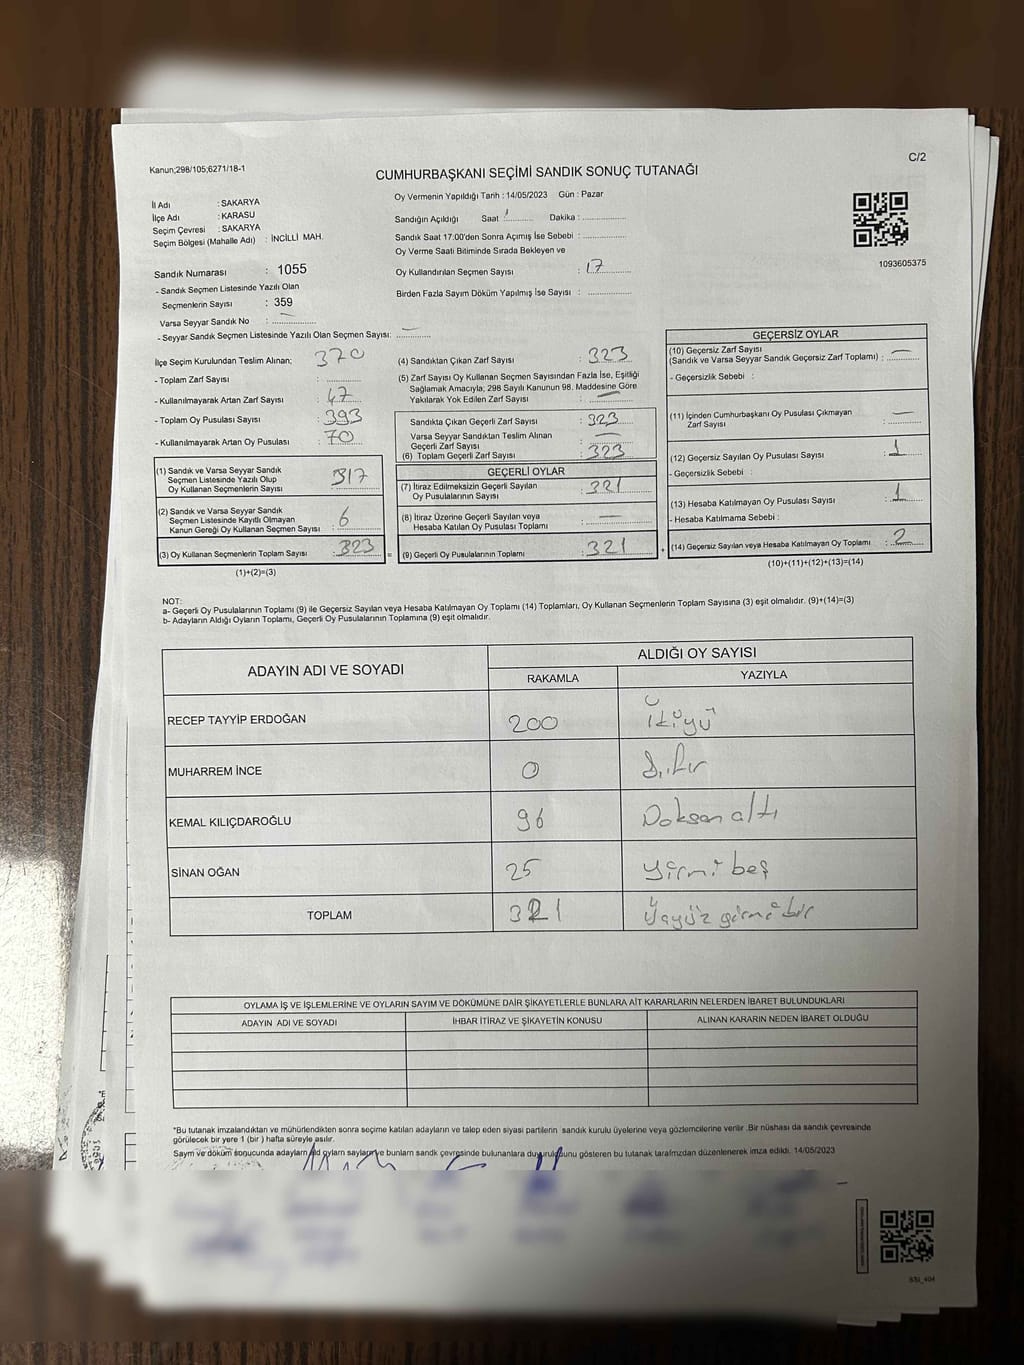 Kanun;298/105;6271/18-1
C/2
CUMHURBAŞKANI SEÇİMİ SANDIK SONUÇ TUTANAĞI
Oy Vermenin Yapıldığı Tarih : 14/05/2023 Gün : Pazar
İl Adı : SAKARYA
İlçe Adı : KARASU
Seçim Çevresi : SAKARYA
Seçim Bölgesi (Mahalle Adı) : İNCİLLİ MAH.
Sandık Numarası : 1055
- Sandık Seçmen Listesinde Yazılı Olan
Seçmenlerin Sayısı : 359
Varsa Seyyar Sandık No :
- Seyyar Sandık Seçmen Listesinde Yazılı Olan Seçmen Sayısı:
Sandığın Açıldığı Saat : Dakika :
Sandık Saat 17:00'den Sonra Açımış İse Sebebi :
Oy Verme Saati Bitiminde Sırada Bekleyen ve
Oy Kullandırılan Seçmen Sayısı : 17
Birden Fazla Sayım Döküm Yapılmış İse Sayısı :
1093605375
İlçe Seçim Kurulundan Teslim Alınan: 370
- Toplam Zarf Sayısı :
- Kullanılmayarak Artan Zarf Sayısı : 47
- Toplam Oy Pusulası Sayısı : 393
- Kullanılmayarak Artan Oy Pusulası : 70
(1) Sandık ve Varsa Seyyar Sandık
Seçmen Listesinde Yazılı Olup
Oy Kullanan Seçmenlerin Sayısı : 317
(2) Sandık ve Varsa Seyyar Sandık
Seçmen Listesinde Kayıtlı Olmayan
Kanun Gereği Oy Kullanan Seçmen Sayısı : 6
(3) Oy Kullanan Seçmenlerin Toplam Sayısı : 323
(1)+(2)=(3)
(4) Sandıktan Çıkan Zarf Sayısı : 323
(5) Zarf Sayısı Oy Kullanan Seçmen Sayısından Fazla İse, Eşitliği
Sağlamak Amacıyla; 298 Sayılı Kanunun 98. Maddesine Göre
Yakılarak Yok Edilen Zarf Sayısı : —
Sandıkta Çıkan Geçerli Zarf Sayısı : 323
Varsa Seyyar Sandıktan Teslim Alınan
Geçerli Zarf Sayısı : —
(6) Toplam Geçerli Zarf Sayısı : 323
GEÇERLİ OYLAR
(7) İtiraz Edilmeksizin Geçerli Sayılan
Oy Pusulalarının Sayısı : 321
(8) İtiraz Üzerine Geçerli Sayılan veya
Hesaba Katılan Oy Pusulası Toplamı : —
= (9) Geçerli Oy Pusulalarının Toplamı : 321 +
GEÇERSİZ OYLAR
(10) Geçersiz Zarf Sayısı
(Sandık ve Varsa Seyyar Sandık Geçersiz Zarf Toplamı) : —
- Geçersizlik Sebebi :
(11) İçinden Cumhurbaşkanı Oy Pusulası Çıkmayan
Zarf Sayısı : —
(12) Geçersiz Sayılan Oy Pusulası Sayısı : 1
- Geçersizlik Sebebi :
(13) Hesaba Katılmayan Oy Pusulası Sayısı : 1
- Hesaba Katılmama Sebebi :
(14) Geçersiz Sayılan veya Hesaba Katılmayan Oy Toplamı : 2
(10)+(11)+(12)+(13)=(14)
NOT:
a- Geçerli Oy Pusulalarının Toplamı (9) ile Geçersiz Sayılan veya Hesaba Katılmayan Oy Toplamı (14) Toplamları, Oy Kullanan Seçmenlerin Toplam Sayısına (3) eşit olmalıdır. (9)+(14)=(3)
b- Adayların Aldığı Oyların Toplamı, Geçerli Oy Pusulalarının Toplamına (9) eşit olmalıdır.
ADAYIN ADI VE SOYADI
ALDIĞI OY SAYISI
RAKAMLA YAZIYLA
RECEP TAYYİP ERDOĞAN 200
MUHARREM İNCE 0 Sıfır
KEMAL KILIÇDAROĞLU 96 Doksan altı
SİNAN OĞAN 25 yirmi beş
TOPLAM 321
OYLAMA İŞ VE İŞLEMLERİNE VE OYLARIN SAYIM VE DÖKÜMÜNE DAİR ŞİKAYETLERLE BUNLARA AİT KARARLARIN NELERDEN İBARET BULUNDUKLARI
ADAYIN ADI VE SOYADI İHBAR İTİRAZ VE ŞİKAYETİN KONUSU ALINAN KARARIN NEDEN İBARET OLDUĞU
*Bu tutanak imzalandıktan ve mühürlendikten sonra seçime katılan adayların ve talep eden siyasi partilerin sandık kurulu üyelerine veya gözlemcilerine verilir .Bir nüshası da sandık çevresinde
görülecek bir yere 1 (bir ) hafta süreyle asılır.
Sayım ve döküm sonucunda adayların oyların ve bunların sandık çevresinde bulunanlara gösteren bu tutanak tarafımzdan düzenlenerek imza edildi. 14/05/2023